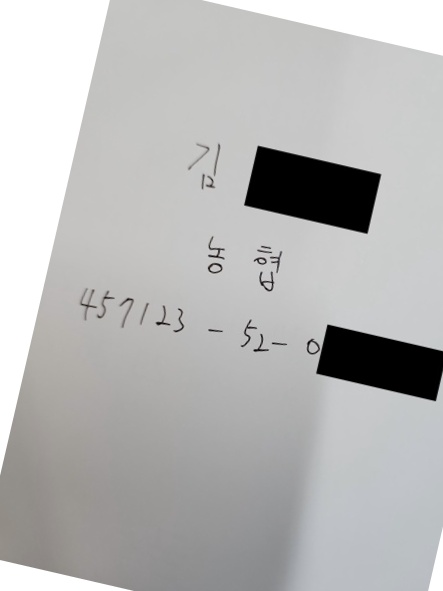 김
농협
457123-52-0